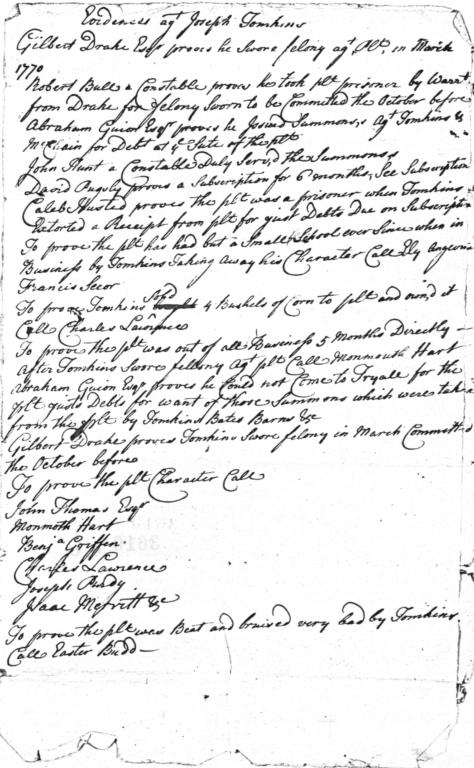 Evidences agt Joseph Tomkins
Gilbert Drake Esqr proves he Swore felony agt Plt. in March
1770
Robert Bull a Constable proves he took plt prisoner by Warrt
from Drake for felony Sworn to be Committed the October before
Abraham Guion Esqr proves he Issued Summons,s agt Tomkins &
McClain for Debt at ye Sute of the plt
John Hunt a Constable Duly Serv,d the Summons,s
David Pugsly proves a Subscription for 6 months, See Subscription
Caleb Husted proves the plt was a prisoner when Tomkins
Extorted a Receipt from plt for just Debts Due on Subscription
To prove the plt has had but a Small School ever Since when in
Business by Tomkins Taking away his Character Call
Francis Secor
To prove Tomkins Sold 4 Bushels of Corn to plt and own,d it
Call Charles Lawrence
To prove the plt was out of all Business 5 Months Directly —
after Tomkins Swore fellony agt plt Call Monmouth Hart
Abraham Guion Esqr proves he Could not Come to Tryall for the
plt just Debts for want of those Summons which were take
from the plt by Tomkins Bates Barns &c
Gilbert Drake proves Tomkins Swore felony in March Committ,d
the October before
To prove the plt Character Call
John Thomas Esqr
Monmoth Hart
Benja Griffen
Charles Lawrence
Joseph Purdy
Isaac Merritt &c
To prove the plt was Beat and bruised very bad by Tomkins.
Call Easter Budd —